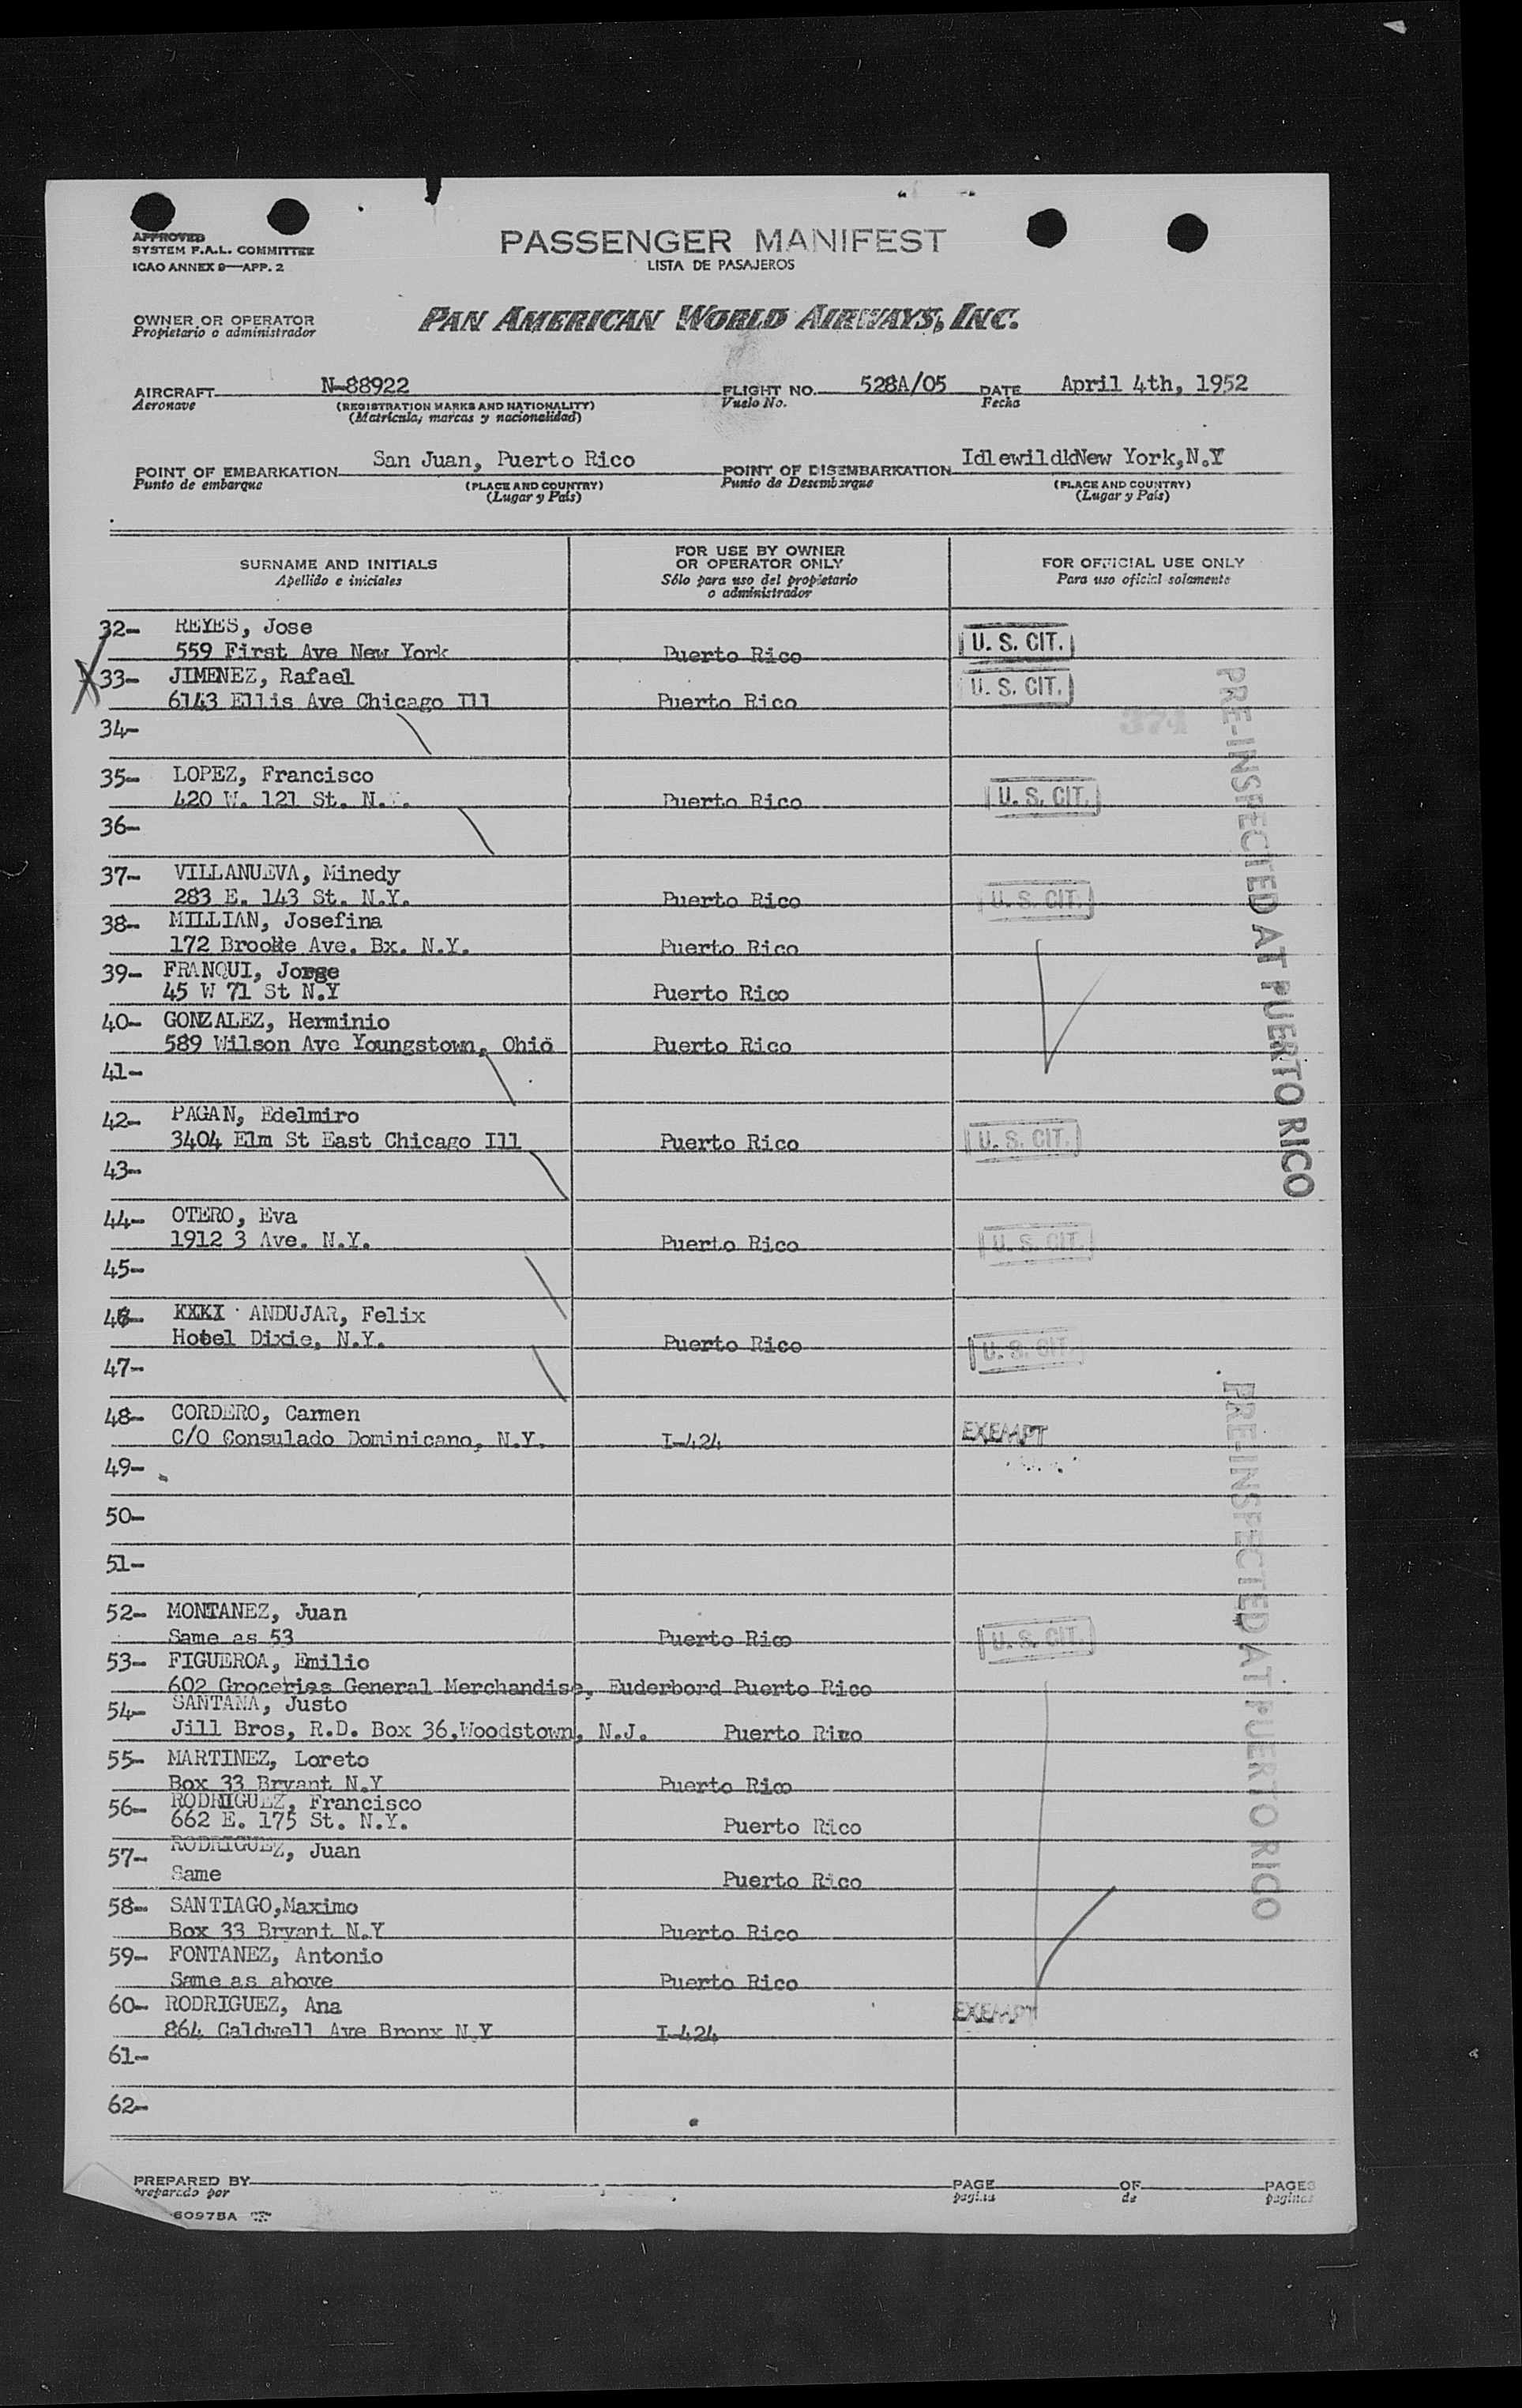 APPROVED
SYSTEM F.A.L. COMMITTEE
ICAO ANNEX 9—APP. 2
PASSENGER MANIFEST
LISTA DE PASAJEROS
OWNER OR OPERATOR
Propietario o administrador
PAN AMERICAN WORLD AIRWAYS, INC.
AIRCRAFT N-88922 FLIGHT NO. 528A/05 DATE April 4th, 1952
Aeronave (REGISTRATION MARKS AND NATIONALITY) Vuelo No. Fecha
(Matricula, marcas y nacionalidad)
POINT OF EMBARKATION San Juan, Puerto Rico POINT OF DISEMBARKATION IdlewildkNew York,N.Y
Punto de embarque (PLACE AND COUNTRY) Punto de Desembarque (PLACE AND COUNTRY)
(Lugar y País) (Lugar y País)
SURNAME AND INITIALS FOR USE BY OWNER OR OPERATOR ONLY FOR OFFICIAL USE ONLY
Apellido e iniciales Sólo para uso del propietario o administrador Para uso oficial solamente
32- REYES, Jose
559 First Ave New York Puerto Rico U. S. CIT.
33- JIMENEZ, Rafael
6143 Ellis Ave Chicago Ill Puerto Rico U. S. CIT.
34- 374
35- LOPEZ, Francisco
420 W. 121 St. N. . Puerto Rico U. S. CIT.
36-
37- VILLANUEVA, Minedy
283 E. 143 St. N.Y. Puerto Rico U. S. CIT.
38- MILLIAN, Josefina
172 Brooke Ave. Bx. N.Y. Puerto Rico
39- FRANQUI, Jorge
45 W 71 St N.Y Puerto Rico
40- GONZALEZ, Herminio
589 Wilson Ave Youngstown, Ohio Puerto Rico
41-
42- PAGAN, Edelmiro
3404 Elm St East Chicago Ill Puerto Rico U. S. CIT.
43-
44- OTERO, Eva
1912 3 Ave. N.Y. Puerto Rico U. S. CIT.
45-
46- ANDUJAR, Felix
Hotel Dixie, N.Y. Puerto Rico U. S. CIT.
47-
48- CORDERO, Carmen
C/O Consulado Dominicano, N.Y. I-424 EXEMPT
49-
50-
51-
52- MONTANEZ, Juan
Same as 53 Puerto Rico U. S. CIT.
53- FIGUEROA, Emilio
602 Groceries General Merchandise, Euderbord Puerto Rico
54- SANTANA, Justo
Jill Bros, R.D. Box 36,Woodstown, N.J. Puerto Rico
55- MARTINEZ, Loreto
Box 33 Bryant N.Y Puerto Rico
56- RODRIGUEZ, Francisco
662 E. 175 St. N.Y. Puerto Rico
57- RODRIGUEZ, Juan
Same Puerto Rico
58- SANTIAGO,Maximo
Box 33 Bryant N.Y Puerto Rico
59- FONTANEZ, Antonio
Same as above Puerto Rico
60- RODRIGUEZ, Ana
864 Caldwell Ave Bronx N.Y I-424 EXEMPT
61-
62-
PRE-INSPECTED AT PUERTO RICO
PRE-INSPECTED AT PUERTO RICO
PREPARED BY PAGE OF PAGES
preparado por pagina de paginas
60975A